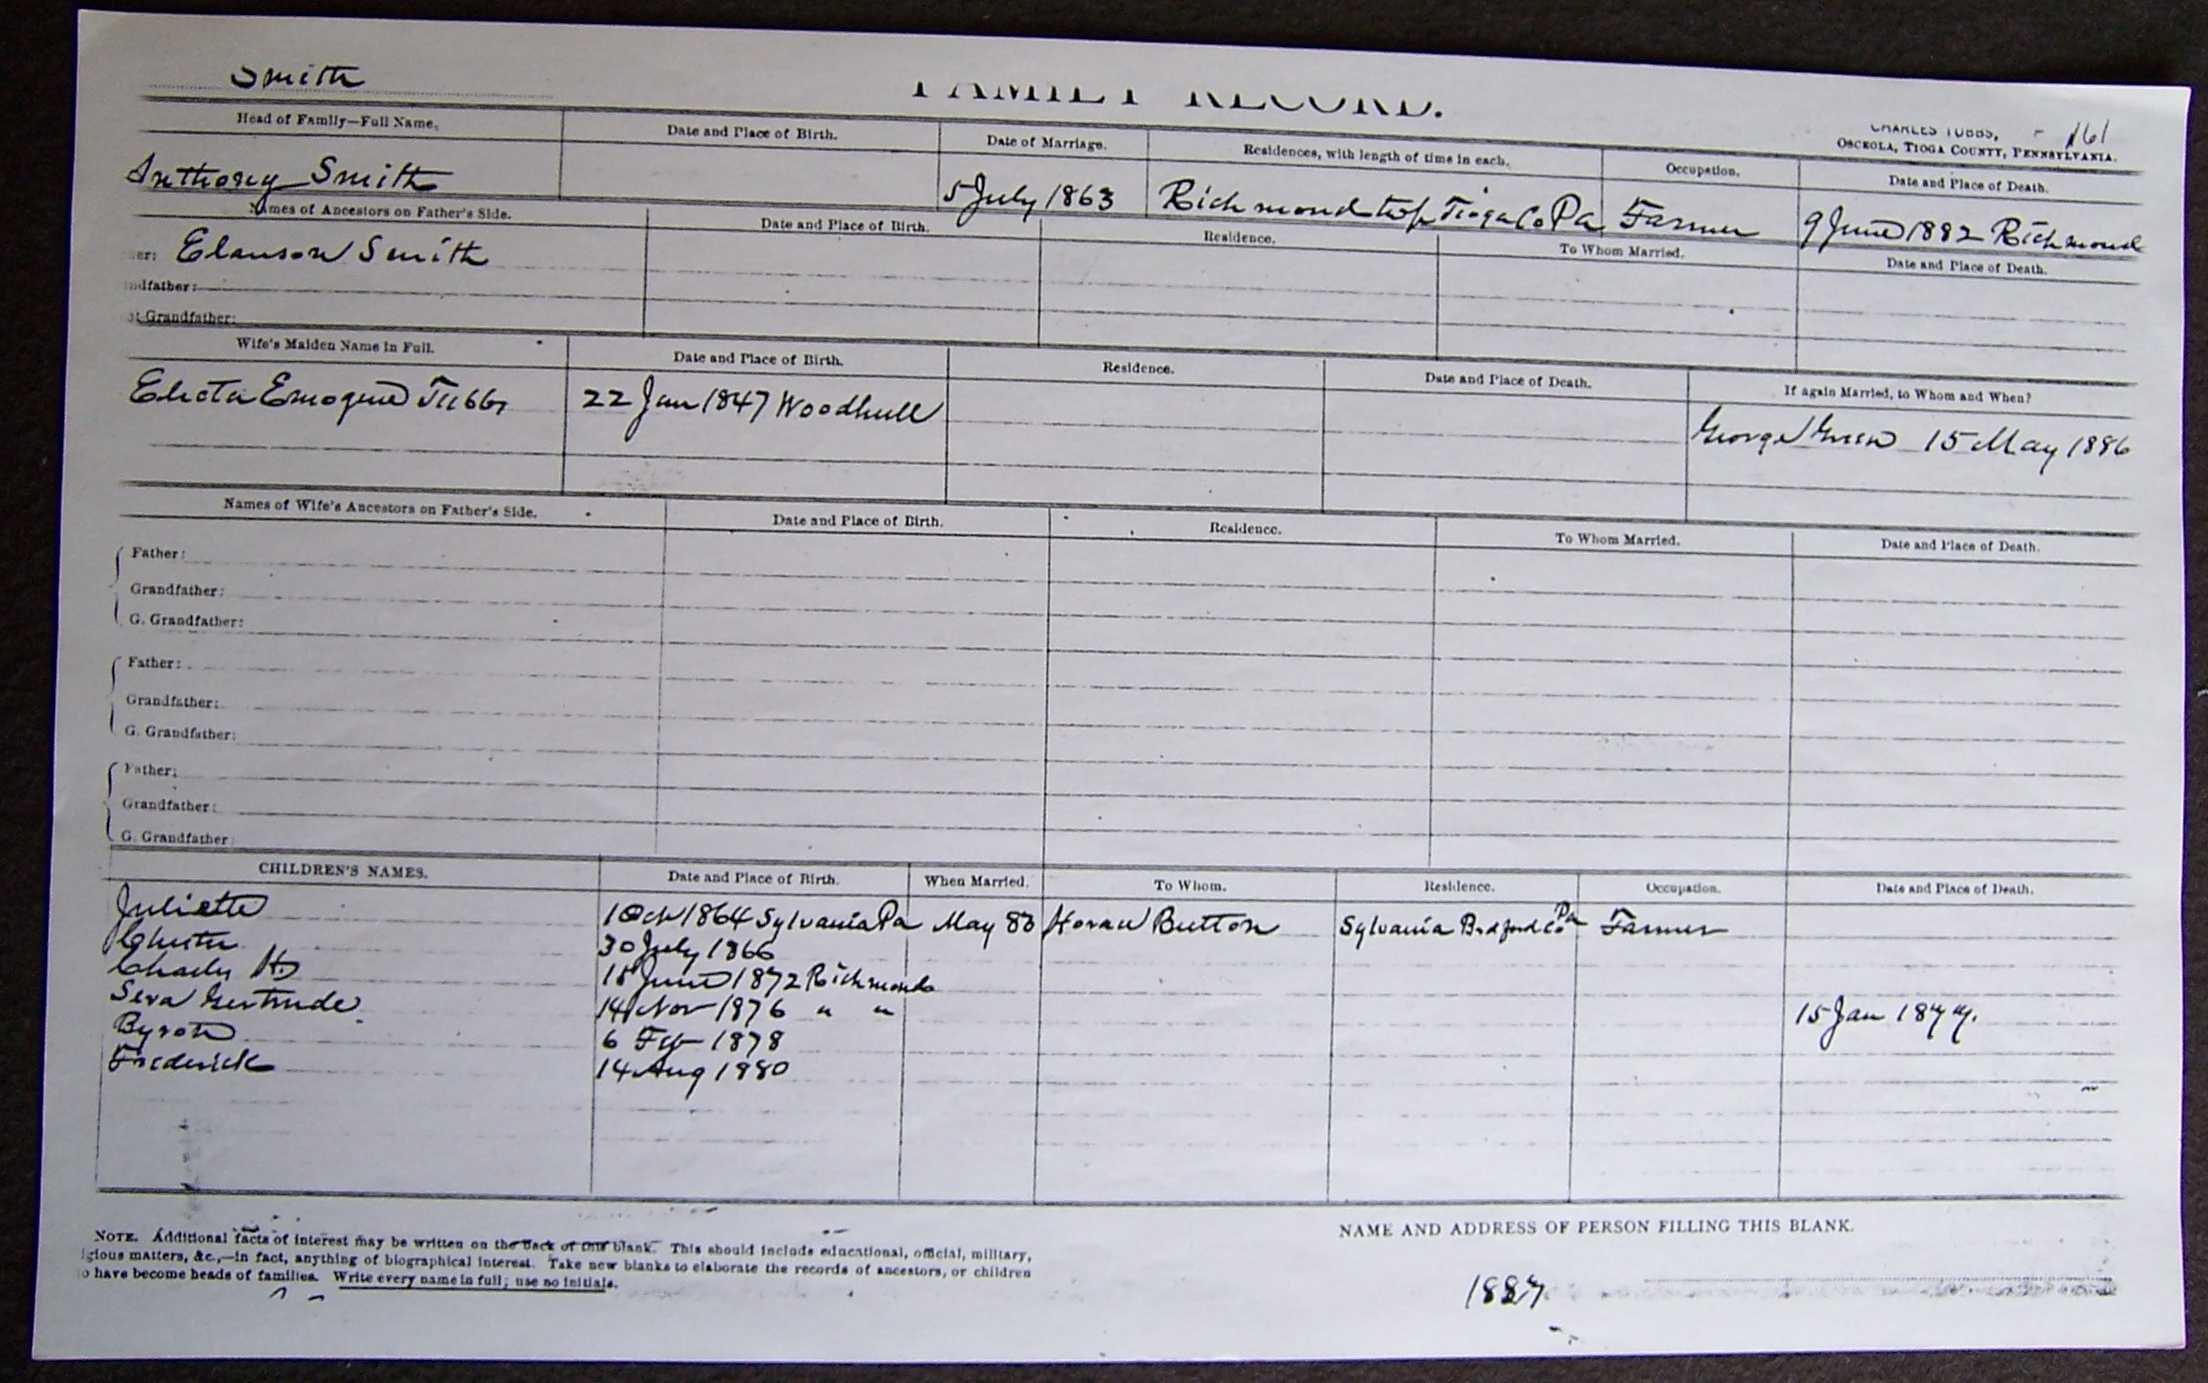 Smith
FAMILY RECORD.
CHARLES TUBBS, 161
OSCEOLA, TIOGA COUNTY, PENNSYLVANIA.
Head of Family—Full Name. Date and Place of Birth. Date of Marriage. Residences, with length of time in each. Occupation. Date and Place of Death.
Anthony Smith 5 July 1863 Richmond twp Tioga Co Pa Farmer 9 June 1882 Richmond
Names of Ancestors on Father's Side. Date and Place of Birth. Residence. To Whom Married. Date and Place of Death.
er: Elanson Smith
ndfather:
t Grandfather:
Wife's Maiden Name in Full. Date and Place of Birth. Residence. Date and Place of Death. If again Married, to Whom and When?
Electa Emogene Tubbs 22 Jan 1847 Woodhull George Green 15 May 1886
Names of Wife's Ancestors on Father's Side. Date and Place of Birth. Residence. To Whom Married. Date and Place of Death.
Father:
Grandfather:
G. Grandfather:
Father:
Grandfather:
G. Grandfather:
Father:
Grandfather:
G. Grandfather:
CHILDREN'S NAMES. Date and Place of Birth. When Married. To Whom. Residence. Occupation. Date and Place of Death.
Juliette 1 Oct 1864 Sylvania Pa May 83 Button Sylvania Bradford Co Pa Farmer
Chester 30 July 1866
Charley H. 18 June 1872 Richmond
Gertrude 14 Nov 1876 " " 15 Jan 1877.
Byron 6 1878
Frederick 14 Aug 1880
NOTE. Additional facts of interest may be written on the back of this blank. This should include educational, official, military,
igious matters, &c.,—in fact, anything of biographical interest. Take new blanks to elaborate the records of ancestors, or children
o have become heads of families. Write every name in full; use no initials.
NAME AND ADDRESS OF PERSON FILLING THIS BLANK.
1887